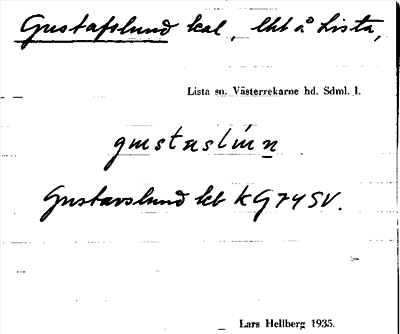 Gustafslund kal, lht å Lista,
Lista sn. Västerrekarne hd. Sdml. l.
gustaslun
Gustavslund lht KG74SV.
Lars Hellberg 1935.